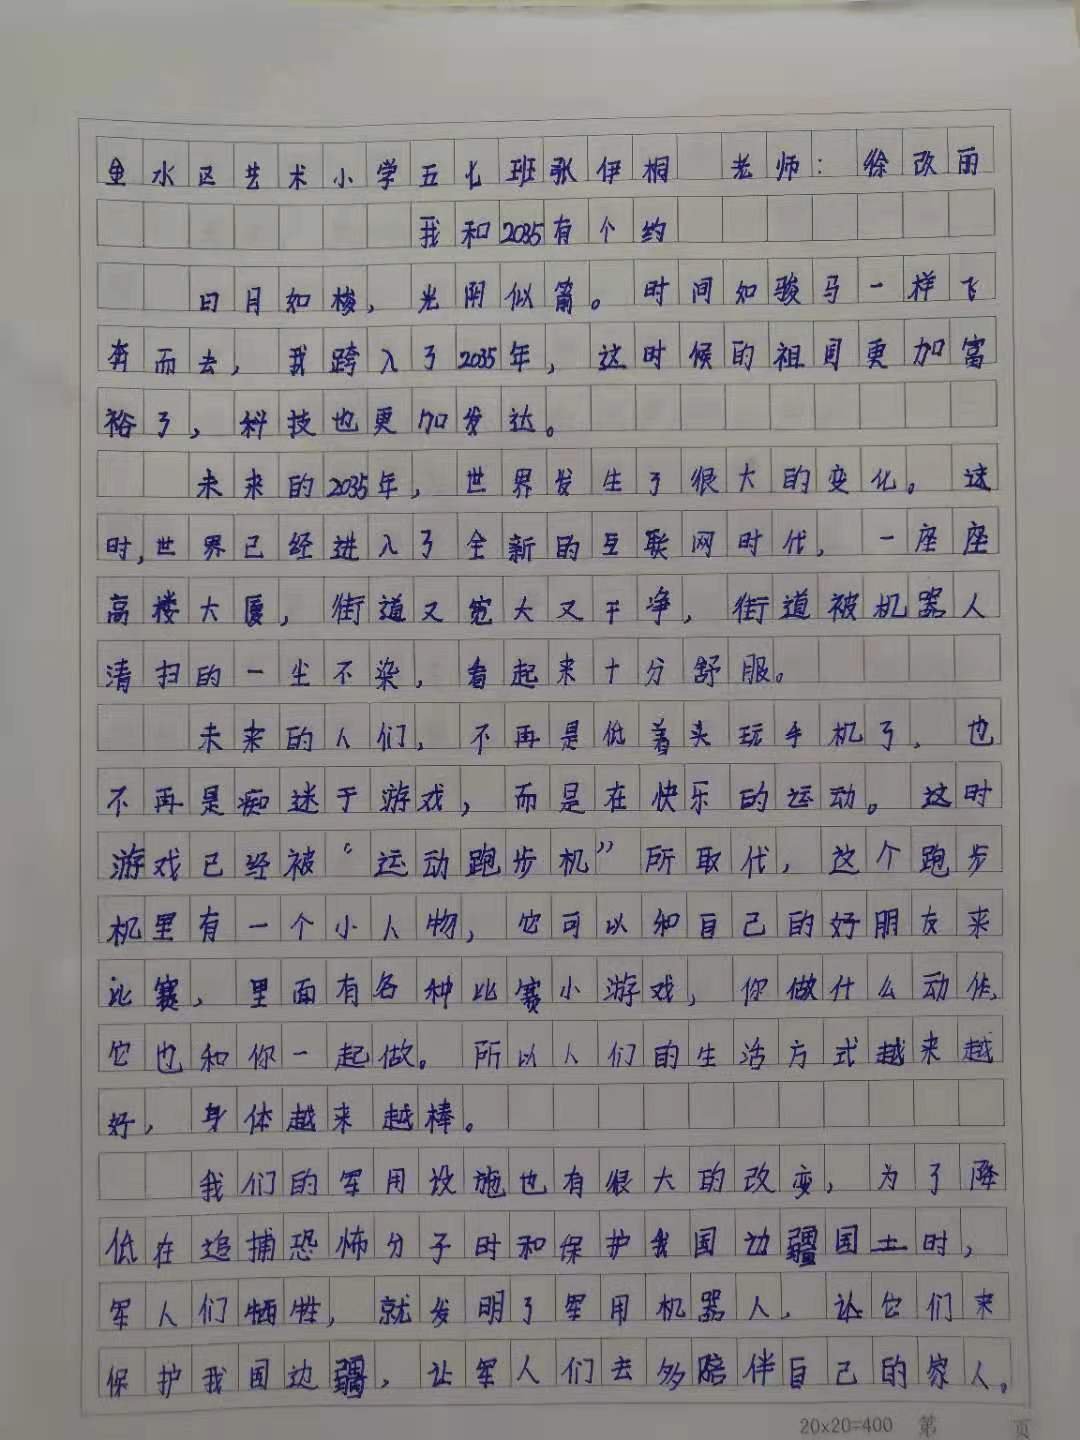 金水区艺术小学五七班张伊桐 老师:徐改丽
我和2035有个约
日月如梭,光阴似箭。时间如骏马一样飞
奔而去,我跨入了2035年,这时候的祖国更加富
裕了,科技也更加发达。
未来的2035年,世界发生了很大的变化。这
时,世界已经进入了全新的互联网时代,一座座
高楼大厦,街道又宽大又干净,街道被机器人
清扫的一尘不染,看起来十分舒服。
未来的人们,不再是低着头玩手机了,也
不再是痴迷于游戏,而是在快乐的运动。这时
游戏已经被“运动跑步机”所取代,这个跑步
机里有一个小人物,它可以和自己的好朋友来
比赛,里面有各种比赛小游戏,你做什么动作,
它也和你一起做。所以人们的生活方式越来越
好,身体越来越棒。
我们的军用设施也有很大的改变,为了降
低在追捕恐怖分子时和保护我国边疆国土时,
军人们牺牲,就发明了军用机器人,让它们来
保护我国边疆,让军人们去多陪伴自己的家人。
20x20=400 第 页